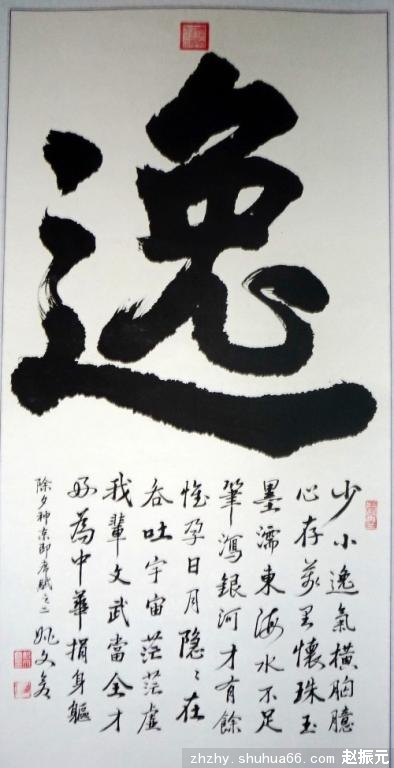 逸
少小逸氣橫胸臆
心存萬里懷珠玉
墨濡東海水不足
筆瀉銀河才有餘
孕日月隱々在
吞吐宇宙茫茫虛
我輩文武當全才
好為中華捐身軀
除夕神京即席賦之二 姚文
zhzhy.shuhua66.com 赵振元